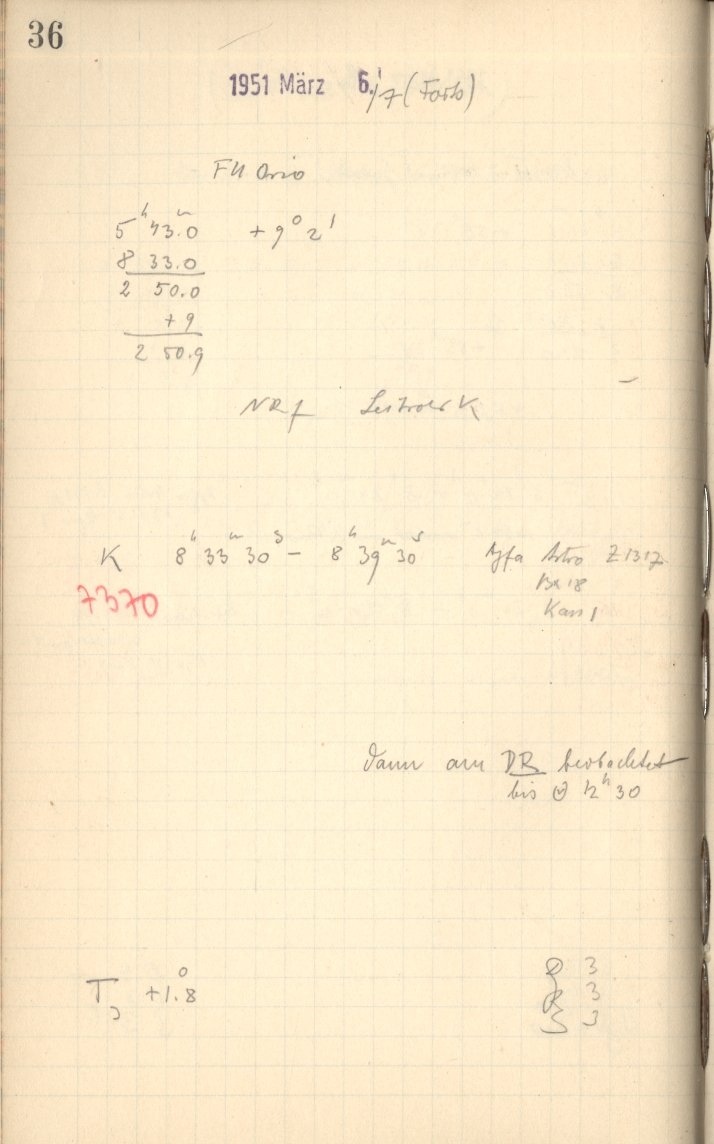 36
1951 März 6./7 (Forts)
FU Orio
5ʰ 43ᵐ.0 + 9° 2'
8 33.0
2 50.0
+ 9
2 50.9
NRf Leitrohr K
K 8ʰ 33ᵐ 30ˢ – 8ʰ 39ᵐ 30ˢ Agfa Astro Z 1317
7370
Kass 1
Dann am DR beobachtet
bis 12ʰ 30
T +1.8°
D 3
R 3
3